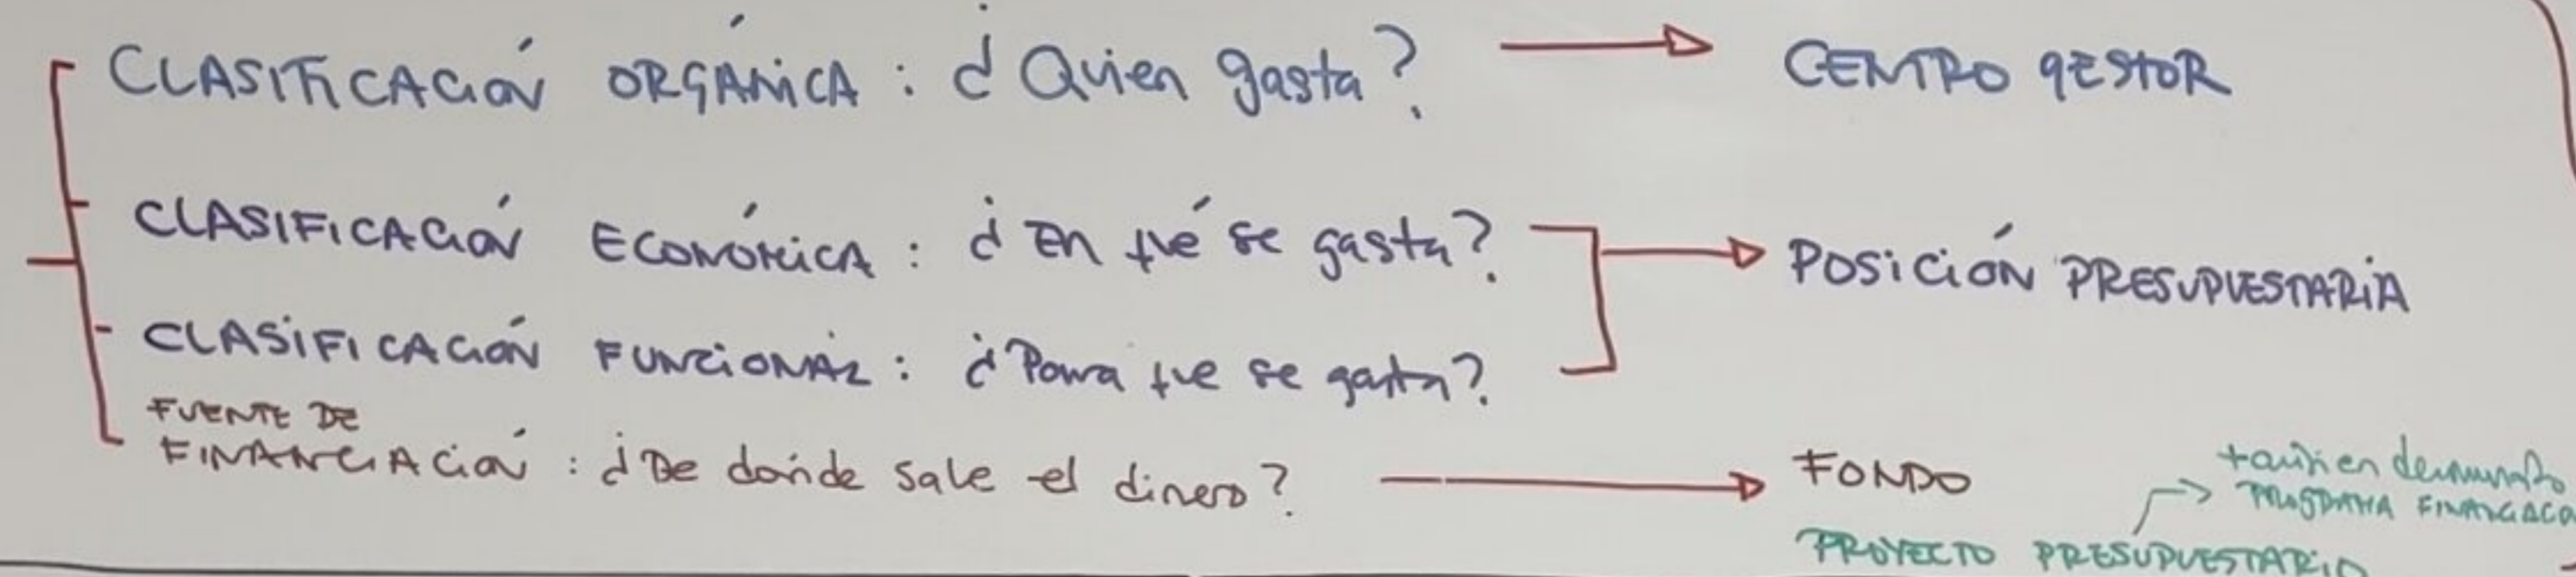 CLASIFICACIÓN ORGÁNICA : ¿Quien gasta? → CENTRO GESTOR
CLASIFICACIÓN ECONÓMICA : ¿En qué se gasta?
POSICIÓN PRESUPUESTARIA
CLASIFICACIÓN FUNCIONAL : ¿Para que se gasta?
FUENTE DE
FINANCIACIÓN : ¿De dónde sale el dinero? → FONDO
también denominado
PROGRAMA
PROYECTO PRESUPUESTARIO